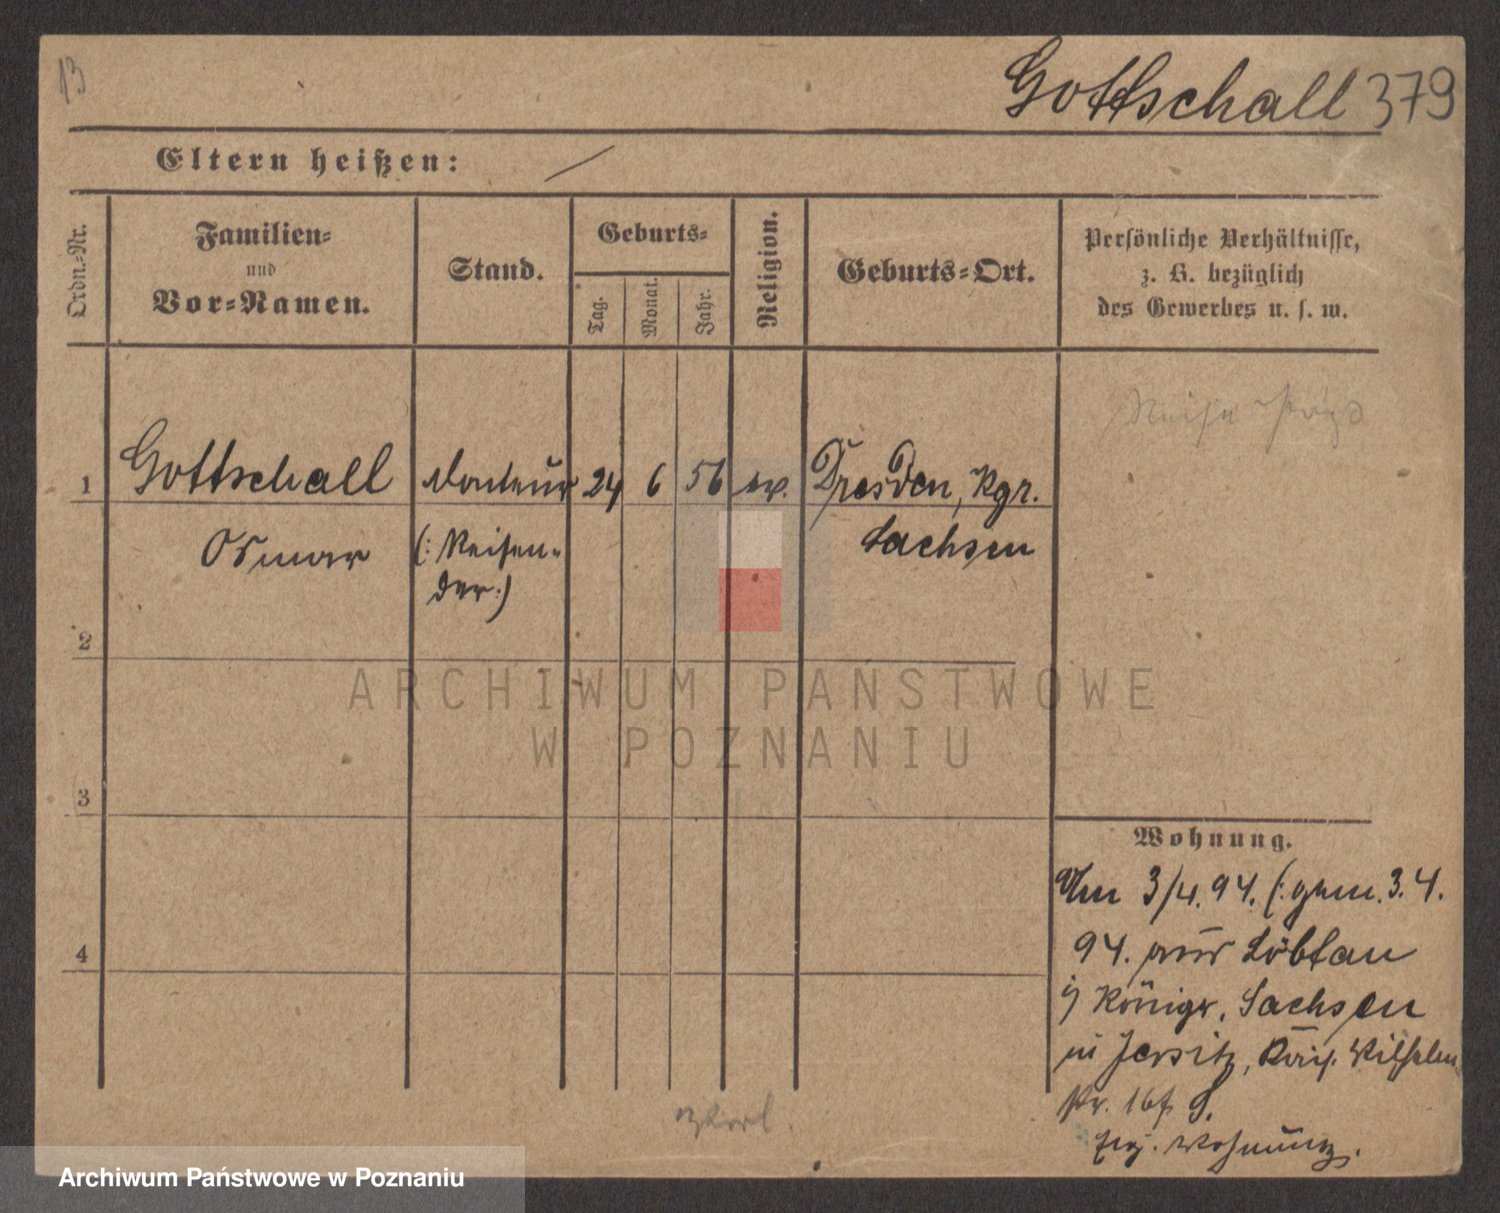 13
Gottschall 379
Eltern heißen: /
Ordn.-Nr.
Familien-
und
Vor-Namen.
Stand.
Geburts-
Tag.
Monat.
Jahr.
Religion.
Geburts-Ort.
Persönliche Verhältnisse,
z. B. bezüglich
des Gewerbes u. s. w.
1 Gottschall Monteur 24 6 56 ev. Dresden, Kgr.
Osmar (: Reisen- Sachsen
der :)
2
3
4
ARCHIWUM PAŃSTWOWE
W POZNANIU
Wohnung.
Am 3/4. 94. (: gem. 3. 4.
94. aus Löbtau
Königr. Sachsen
in Jersitz, Kais. Wilhelm
Str. 16
Wohnung.
Archiwum Państwowe w Poznaniu